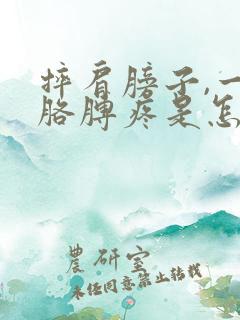 摔肩膀子,一
胳膊疼是怎
農研室
未经同意禁止转载